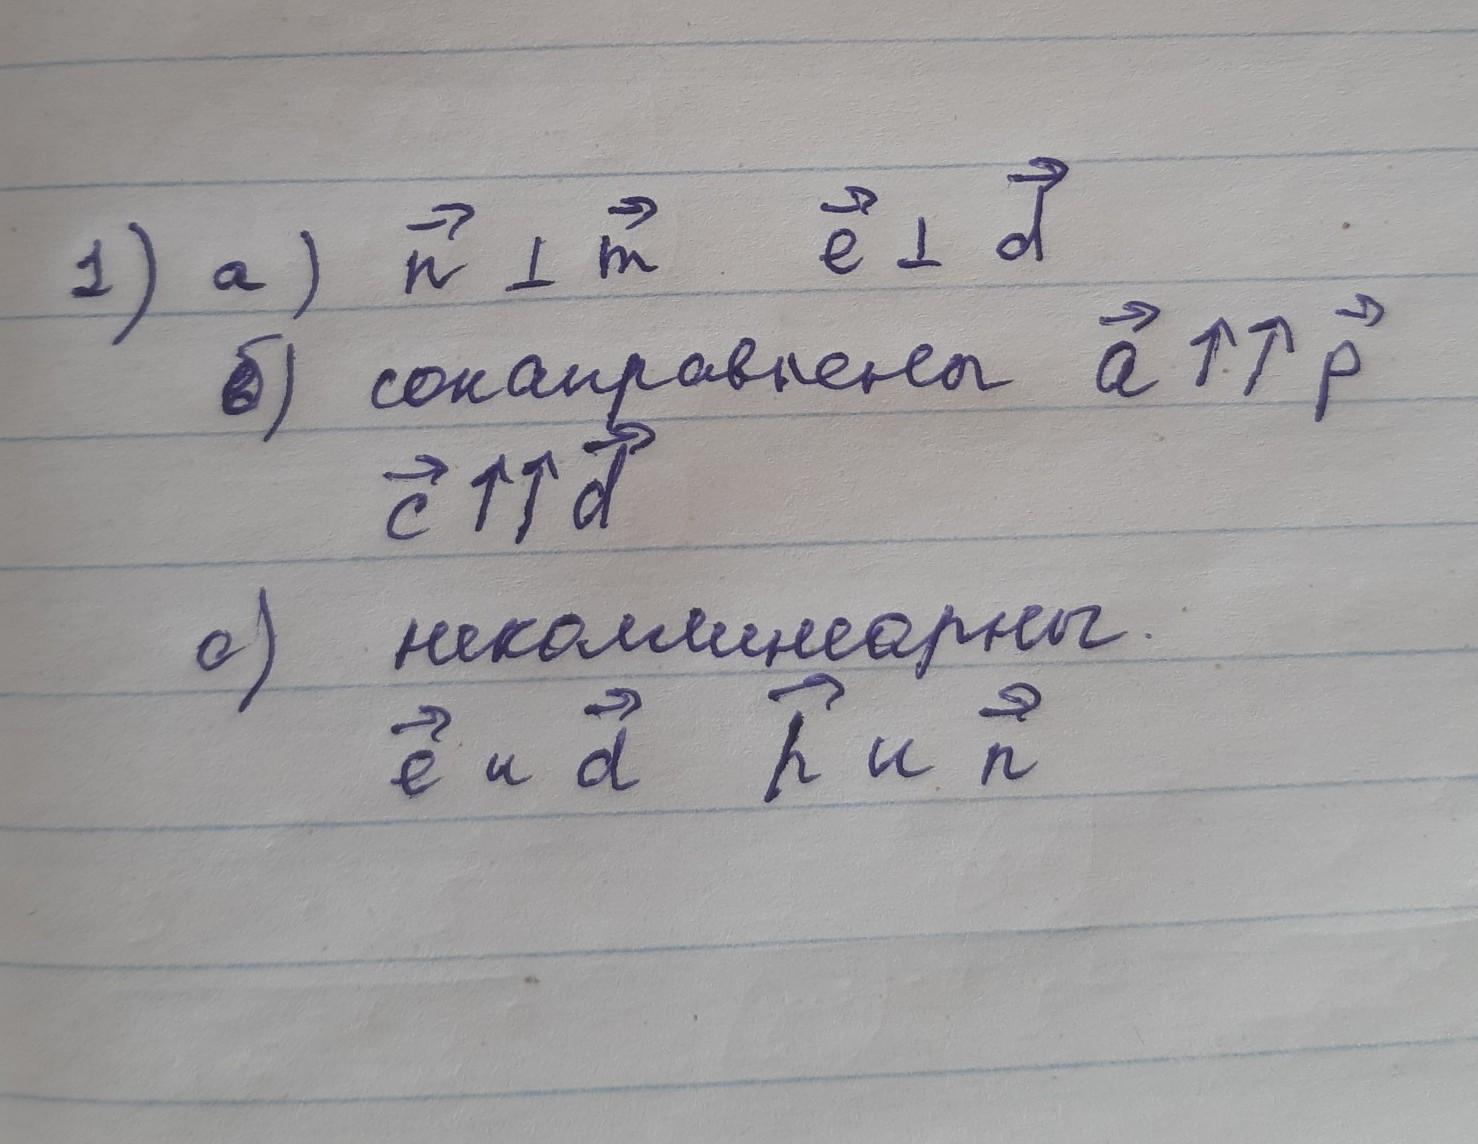 1) а) n⃗ ⊥ m⃗ e⃗ ⊥ d⃗
б) сонаправлены a⃗ ↑↑ p⃗
c⃗ ↑↑ d⃗
с) неколлинеарны.
e⃗ и d⃗ p⃗ и n⃗